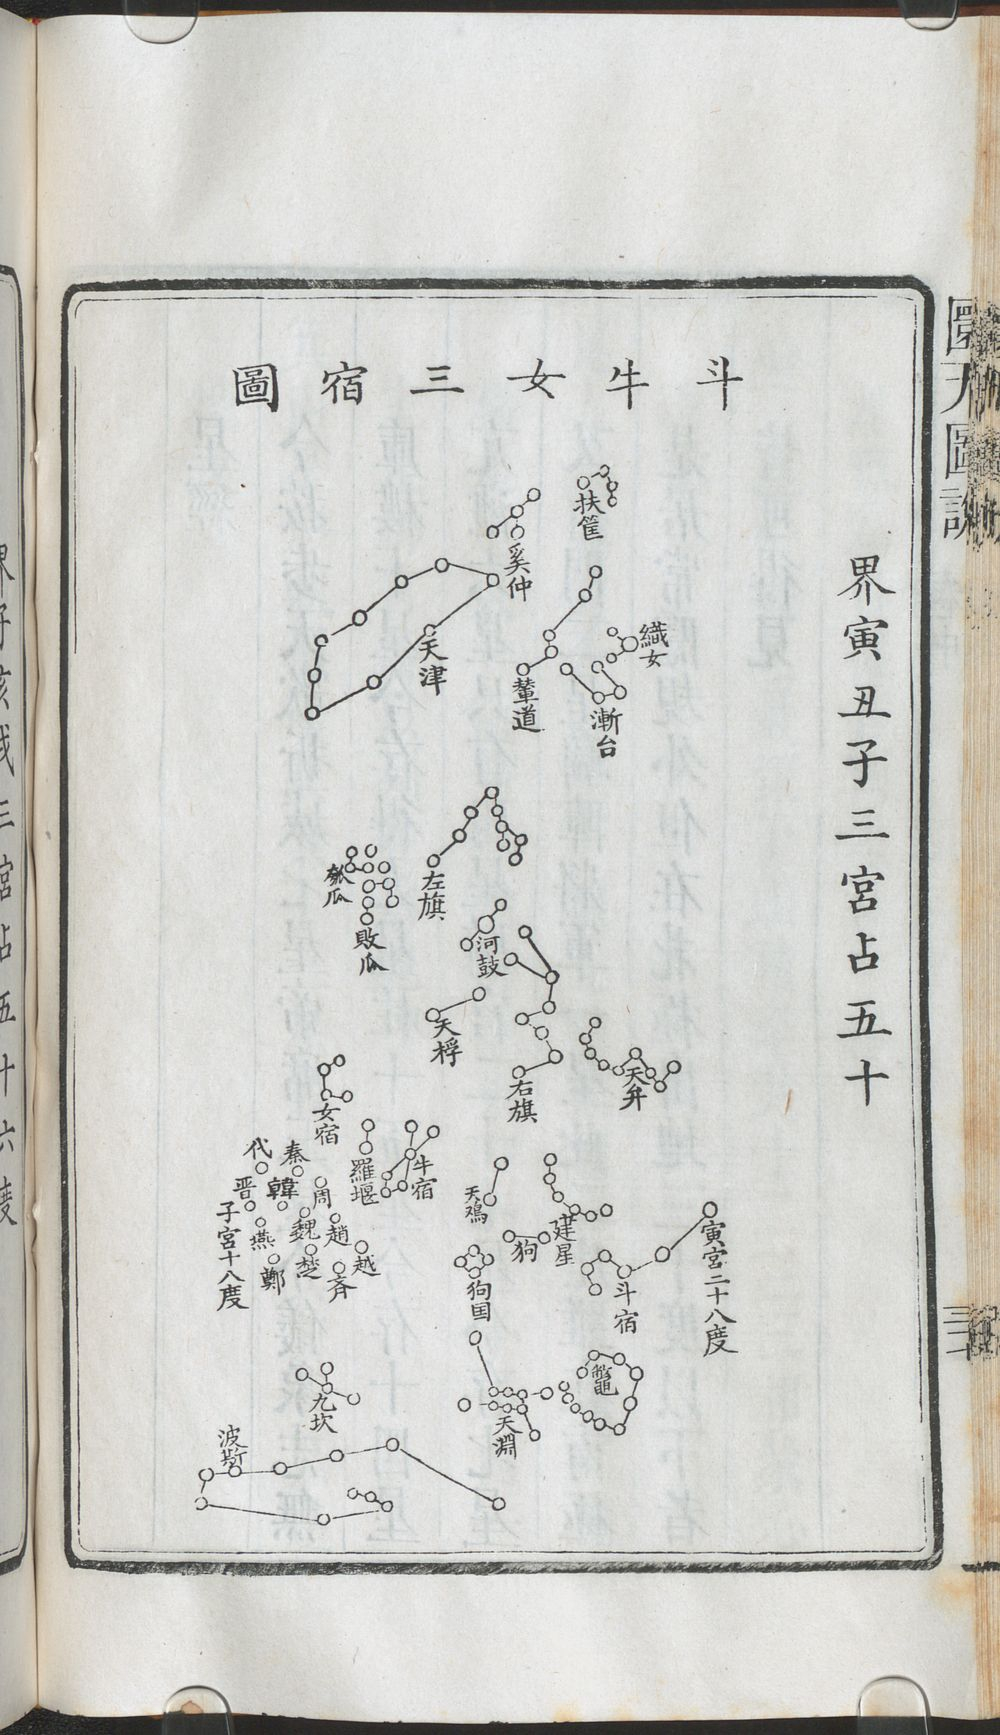 斗牛女三宿圖
界寅丑子三宮占五十
扶筐
奚仲
天津
織女
輦道
漸台
左旗
瓠瓜
敗瓜
河鼓
天桴
右旗
天弁
女宿
羅堰
牛宿
天鸡
建星
狗
狗国
斗宿
寅宮二十八度
代
秦
晋
韓
周
子宮十八度
燕
魏
趙
鄭
楚
齐
越
鼈
天淵
九坎
波斯
圜天圖說